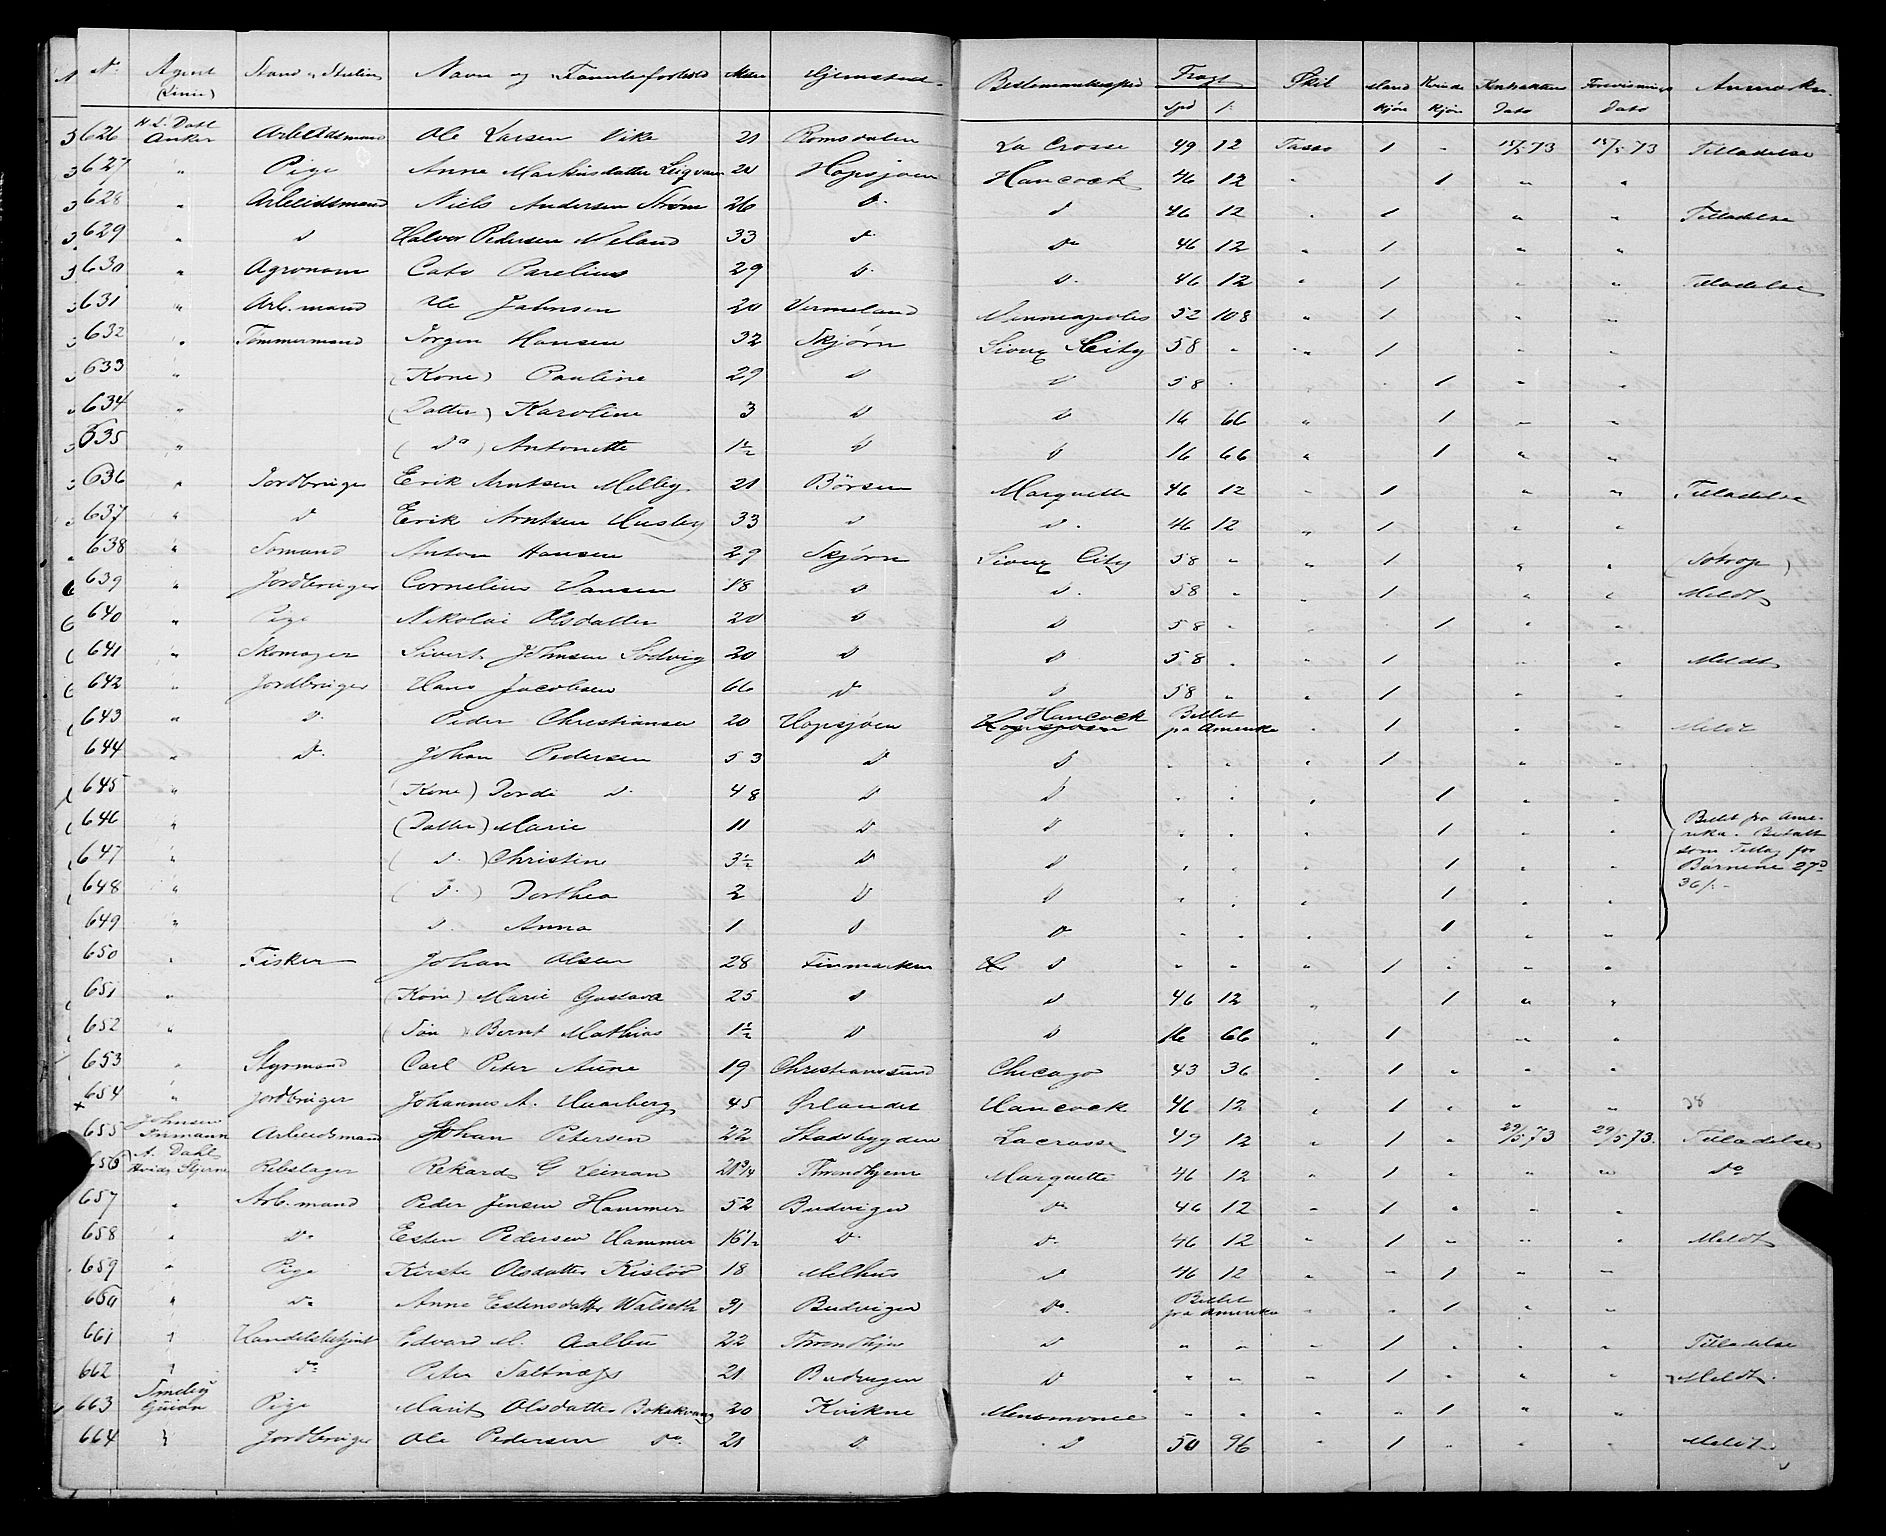 N. Agent (Linie) Stand og Stilling Navn og Familieforhold Alder Hjemsted Bestemmelsessted Fragt Spd ſ: Skib Mand kjøn Kvinde kjøn Kontraktens Dato Forevisnings Dato Anmærkn.
626 H. L. Dahl Anker Arbeidsmand Ole Larsen Vike 21 Romsdalen La Crosse 49 12 Tasso 1 " 15/5 73 15/5 73 Tilladelse
627 " Pige Anne Markusdatter 24 Hopsjøen Hancock 46 12 " 1 " "
628 " Arbeidsmand Niels Andersen Strøm 26 D. D 46 12 " 1 " " Tilladelse
629 " D Halvor Pedersen Meland 33 D. Do 46 12 " 1 " "
630 " Agronom Cato Parelius 29 D. D. 46 12 " 1 " " Tilladelse
631 " Arb. mand Ole Johnsen 20 Vermeland Minneapolis 52 108 " 1 " "
632 " Tømmermand Jørgen Hansen 32 Skjørn Sioux City 58 " " 1 " "
633 " (Kone) Pauline 29 D D 58 " " 1 " "
634 " (Datter) Karoline 3 D D 16 66 " 1 " "
635 " (Do) Antonette 1½ D D 16 66 " 1 " "
636 " Jordbruger Erik Arntsen Melby 21 Börsen Marquette 46 12 " 1 " " Tilladelse
637 " D Erik Arntsen Husby 33 D D. 46 12 " 1 " "
638 " Sømand Anton Hansen 29 Skjørn Sioux City 58 " " 1 " " (Søtrop)
639 " Jordbruger Cornelius Hansen 18 D D. 58 " " 1 " " Meldt
640 " Pige Nikolai Olsdatter 20 D D 58 " " 1 " "
641 " Skomager Sivert Johnsen Södvig 20 D D 58 " " 1 " " Meldt
642 " Jordbruger Hans Jacobsen 66 D D 58 " " 1 " "
643 " D. Peder Christiansen 20 Hopsjøen Hopsjøen Hancock Billet fra Amerika " 1 " " Meldt
644 " D. Johan Pedersen 53 D D " " " 1 " "
645 " (Kone) Dorde D. 48 D D " " " 1 " "
646 " (Datter) Marie 11 D D " " " 1 " " Billet fra Amerika. Betalt som Tillæg for Børnene 27D 36 ſ. -
647 " (D.) Christine 3½ D D " " " 1 " "
648 " (D.) Dorthea 2 D D " " " 1 " "
649 " D. Anna 1 D D " " " 1 " "
650 " Fisker Johan Olsen 28 Finmarken D " " " 1 " " "
651 " (Kone) Marie Gustava 25 D D 46 12 " 1 " "
652 " (Søn) Bernt Mathias 1½ D D 16 66 " 1 " "
653 " Styrmand Carl Peter Aune 19 Christianssund Chicago 43 36 " 1 " " "
654 " Jordbruger Johannes A. Haarberg 45 Ørlandet Hancock 46 12 " 1 " " " 38
655 Johnsen Inmann Arbeidsmand Johan Petersen 22 Stadsbygden Lacrosse 49 12 " 1 " 29/5 73 29/5 73. Tilladelse
656 A. Dahl Hvide Stjerne Rebslager Rekard G Leinan 21 3/4 Throndhjem Marquette 46 12 " 1 " " " Do
657 " Arb. mand Peder Jensen Hammer 52 Budvigen Do 46 12 " 1 " " "
658 " Do Esten Pedersen Hammer 16½ D. D. 46 12 " 1 " " " Meldt
659 " Pige Kirste Olsdatter 18 Melhus D 46 12 " " 1 " "
660 " Do Anne Estensdatter Walseth 31 Budvigen Do. Billet fra Amerika " " 1 " "
661 " Handelsbetjent Edvard M. Aalbu 22 Throndhjem D " " " 1 " " " Tilladelse
662 " Do Peter Saltnæss 21 Budvigen D " " " 1 " " " Meldt.
663 Smeby Guion Pige Marit Olsdatter 20 Kvikne Menomonee " " " " 1 " "
664 " Jordbruger Ole Pedersen Do 21 D. D 50 96 " 1 " " " Meldt